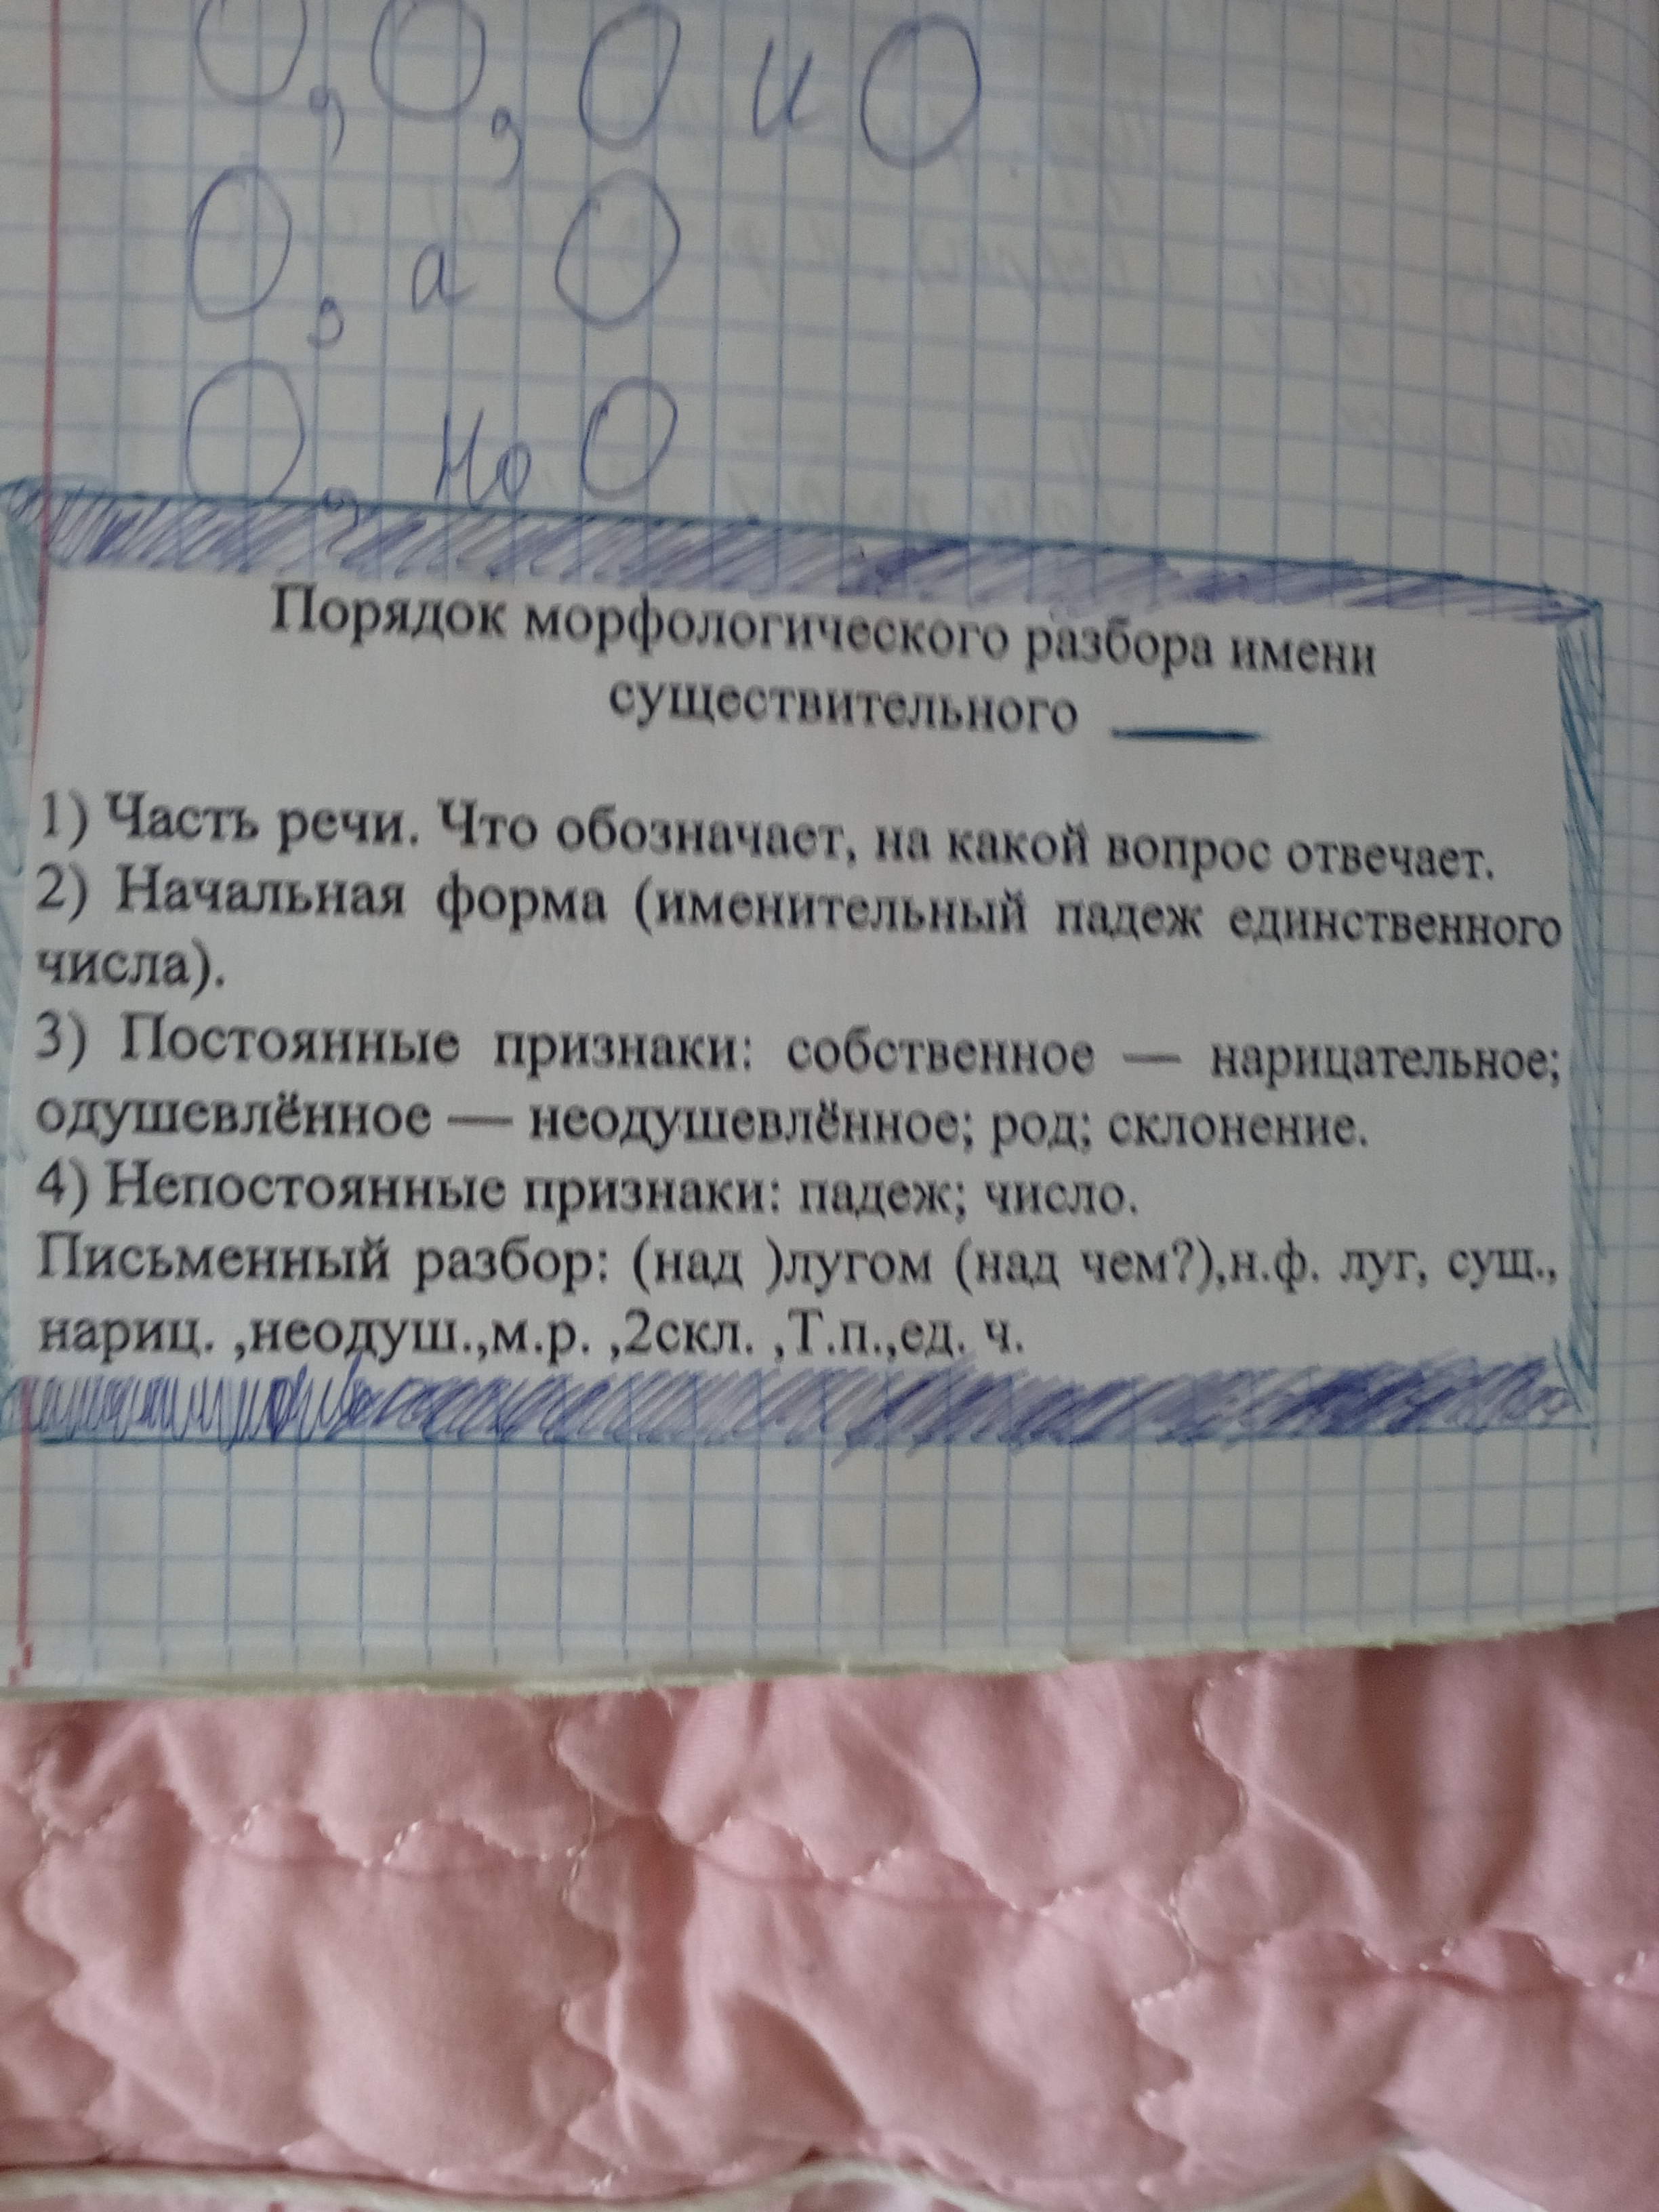 О, О, О и О
О, а О
О, но О
Порядок морфологического разбора имени
существительного
1) Часть речи. Что обозначает, на какой вопрос отвечает.
2) Начальная форма (именительный падеж единственного
числа).
3) Постоянные признаки: собственное — нарицательное;
одушевлённое — неодушевлённое; род; склонение.
4) Непостоянные признаки: падеж; число.
Письменный разбор: (над )лугом (над чем?),н.ф. луг, сущ.,
нариц. ,неодуш.,м.р. ,2скл. ,Т.п.,ед. ч.